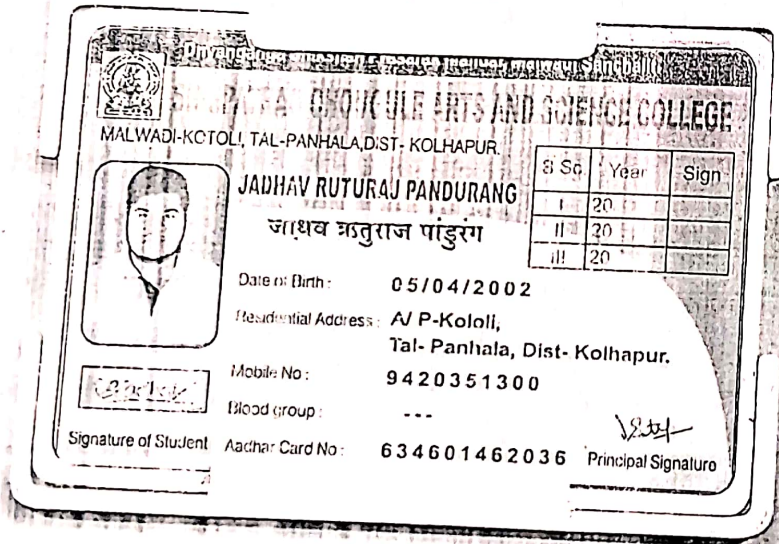 ARTS AND SCIENCE COLLEGE
MALWADI-KOTOLI, TAL-PANHALA, DIST- KOLHAPUR.
JADHAV RUTURAJ PANDURANG
जाधव ऋतुराज पांडुरंग
B Sc Year Sign
I 20
II 20
III 20
Date of Birth : 05/04/2002
Residential Address : A/ P-Kololi,
Tal- Panhala, Dist- Kolhapur.
Mobile No : 9420351300
Blood group : ---
Aadhar Card No : 634601462036
Signature of Student
Principal Signature